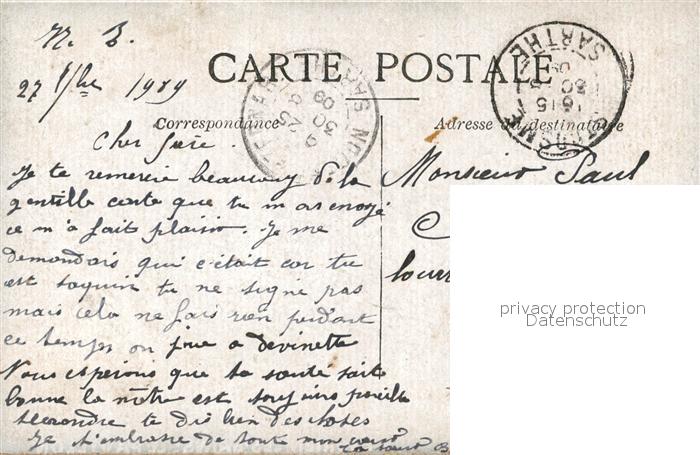 N. B.
27 1909
CARTE POSTALE
Correspondance
Adresse du destinataire
SARTHE
Cher frère.
Je te remercie beaucoup de la
gentille carte que tu m as envoyé
ce m'a fait plaisir. Je me
demandais qui c'était car tu
est taquin tu ne signe pas
mais cela ne fais rien pendant
ce temps on joue a devinette
Nous esperions que ta santé soit
bonne la nôtre est toujours pareille
te dis bien des choses
Je t'embrasse de tout mon coeur
ta soeur B
Monsieur Paul
privacy protection
Datenschutz